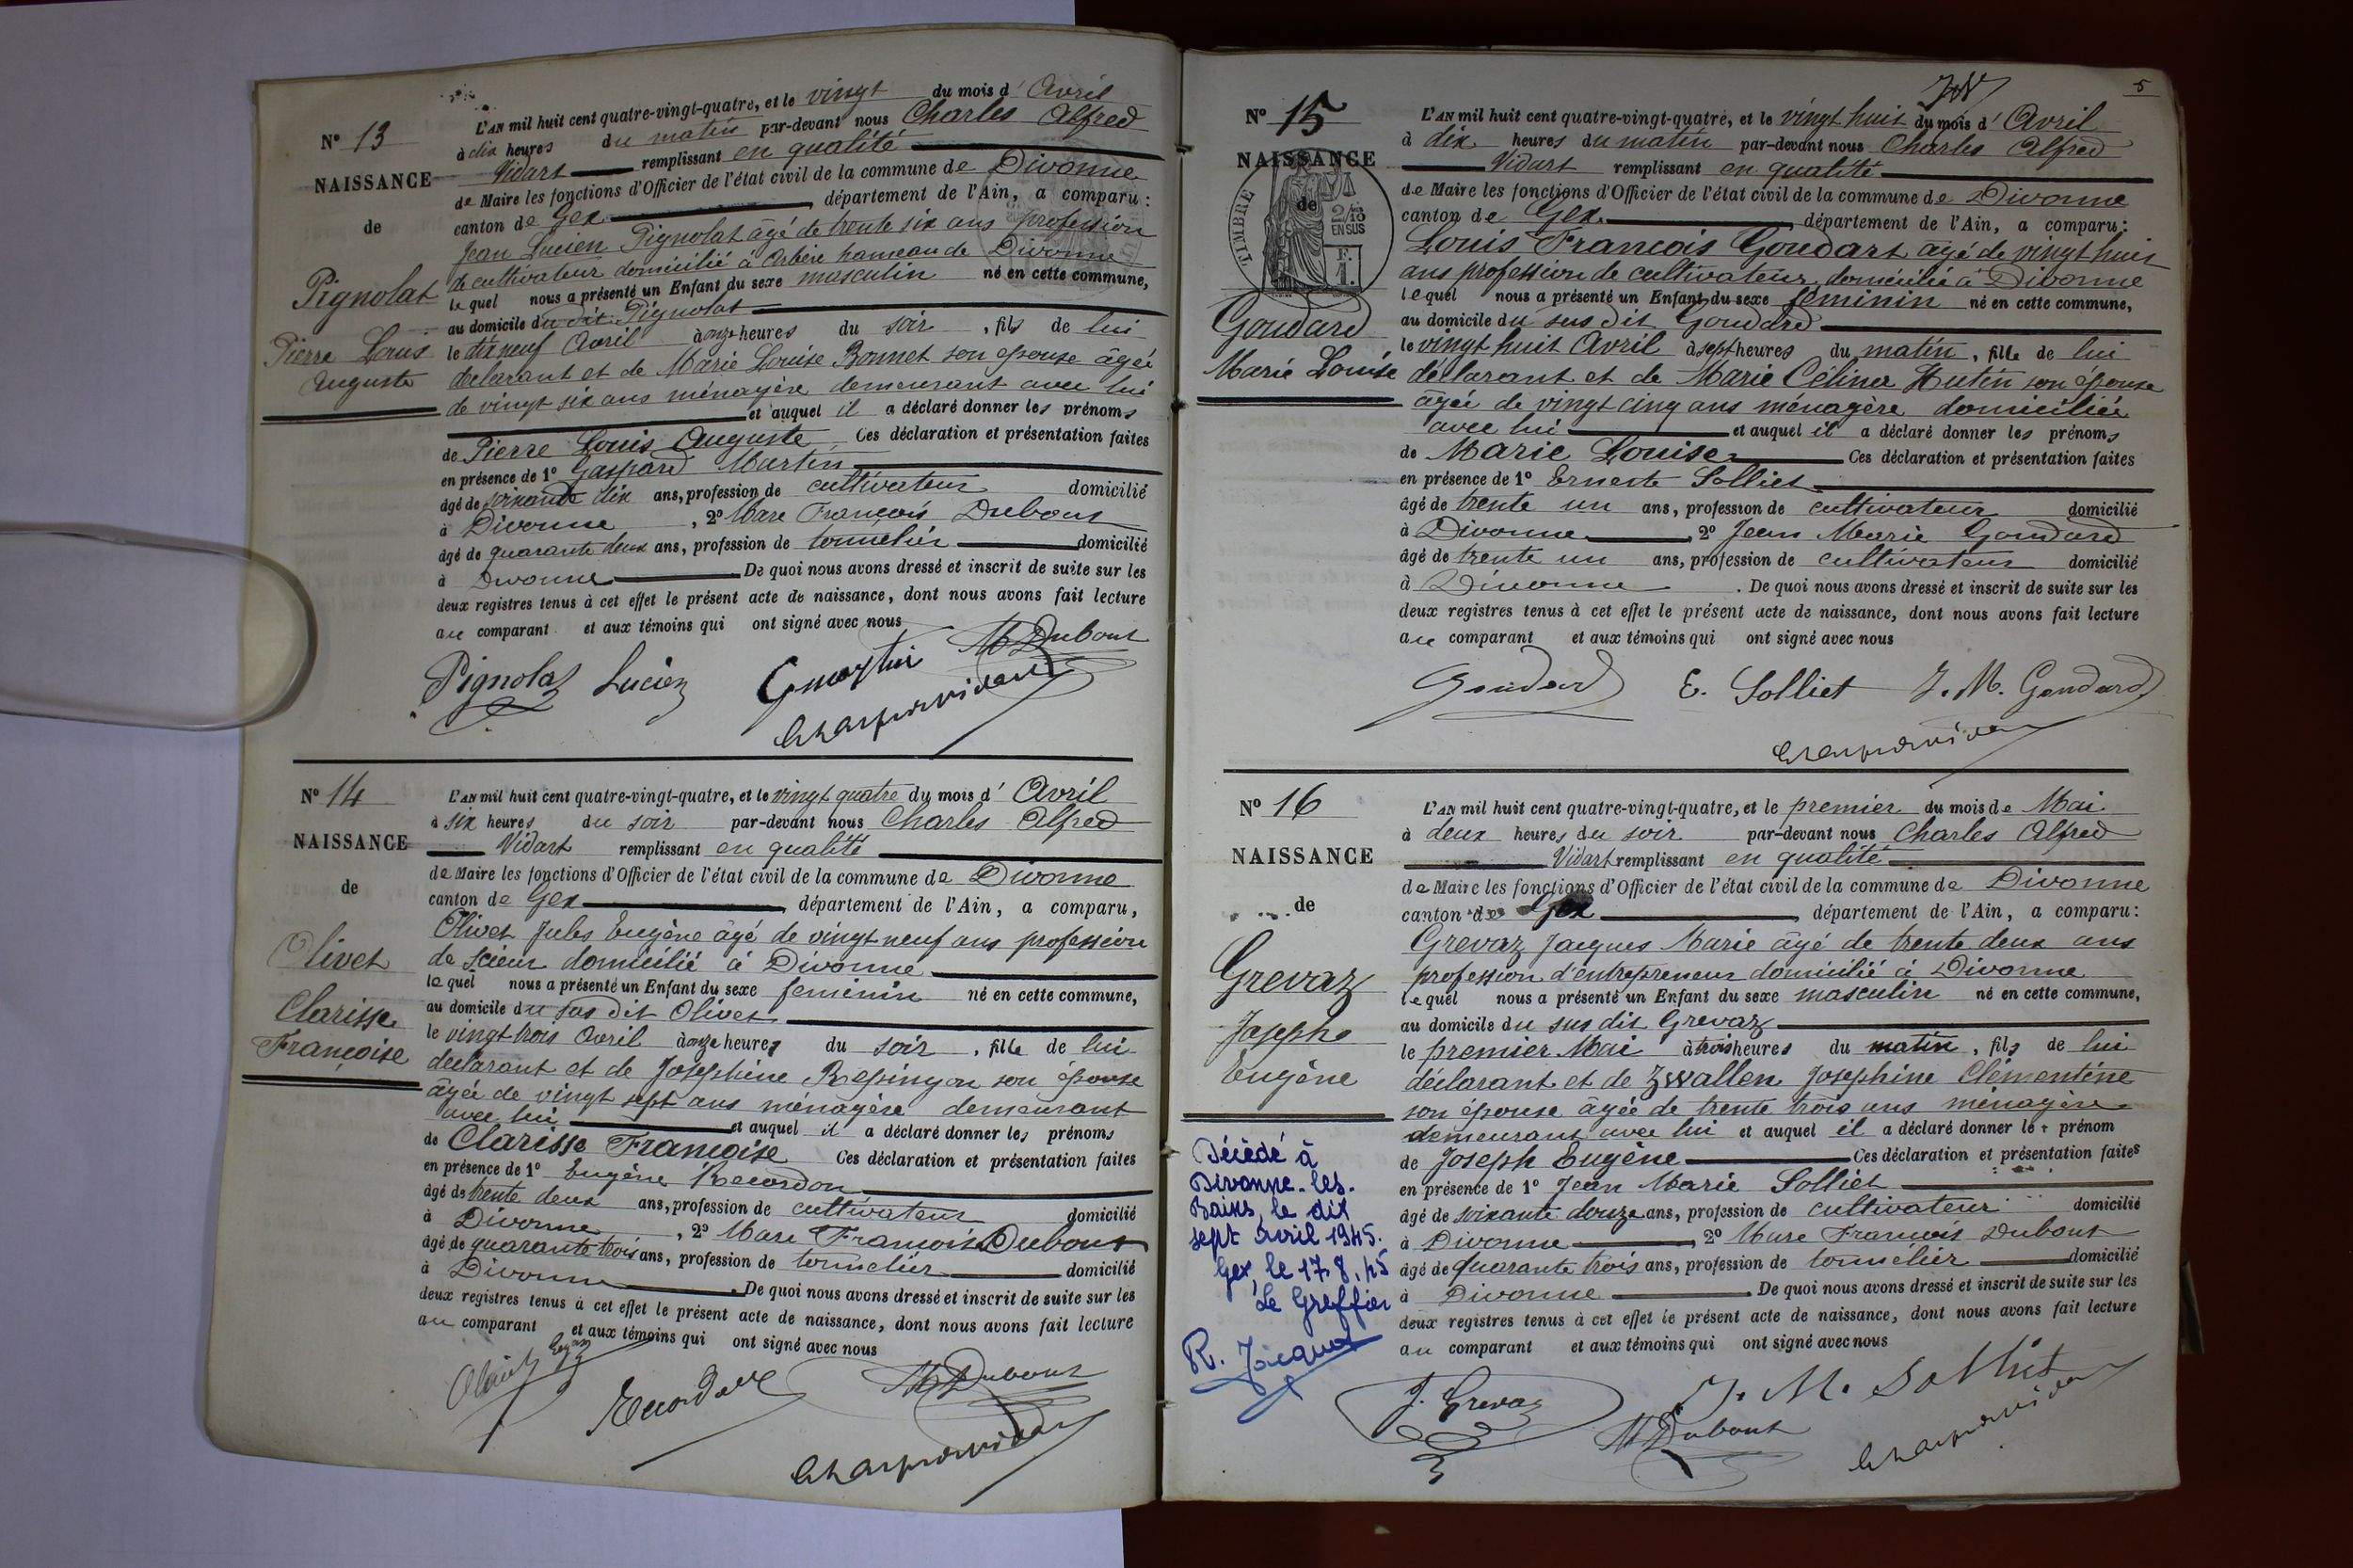 N° 13
NAISSANCE
de
Pignolat
Pierre Louis
Auguste
L'AN mil huit cent quatre-vingt-quatre, et le vingt du mois d' Avril
à dix heures du matin par-devant nous Charles Alfred
Vidart remplissant en qualité
de Maire les fonctions d'Officier de l'état civil de la commune de Divonne
canton de Gex, département de l'Ain, a comparu :
Jean Lucien Pignolat âgé de trente six ans profession
de cultivateur domicilié à Arbère hameau de Divonne
lequel nous a présenté un Enfant du sexe masculin né en cette commune,
au domicile du dit Pignolat
le dix neuf Avril à onze heures du soir, fils de lui
déclarant et de Marie Louise Bonnet son épouse âgée
de vingt six ans ménagère demeurant avec lui
et auquel il a déclaré donner les prénoms
de Pierre Louis Auguste Ces déclaration et présentation faites
en présence de 1° Gaspard Martin
âgé de soixante dix ans, profession de cultivateur domicilié
à Divonne, 2° Marc François Dubout
âgé de quarante deux ans, profession de tonnelier domicilié
à Divonne De quoi nous avons dressé et inscrit de suite sur les
deux registres tenus à cet effet le présent acte de naissance, dont nous avons fait lecture
au comparant et aux témoins qui ont signé avec nous
Pignolat Lucien G martin M Dubout
N° 14
NAISSANCE
de
Olivet
Clarisse
Françoise
L'AN mil huit cent quatre-vingt-quatre, et le vingt quatre du mois d' Avril
à six heures du soir par-devant nous Charles Alfred
Vidart remplissant en qualité
de Maire les fonctions d'Officier de l'état civil de la commune de Divonne
canton de Gex, département de l'Ain, a comparu,
Olivet Jules Eugène âgé de vingt neuf ans profession
de scieur domicilié à Divonne
lequel nous a présenté un Enfant du sexe feminin né en cette commune,
au domicile du sus dit Olivet
le vingt trois Avril à onze heures du soir, fille de lui
declarant et de Josephine Respingon son épouse
âgée de vingt sept ans ménagère demeurant
avec lui et auquel il a déclaré donner les prénoms
de Clarisse Françoise Ces déclaration et présentation faites
en présence de 1° Eugène Recordon
âgé de trente deux ans, profession de cultivateur domicilié
à Divonne, 2° Marc François Dubout
âgé de quarante trois ans, profession de tonnelier domicilié
à Divonne. De quoi nous avons dressé et inscrit de suite sur les
deux registres tenus à cet effet le présent acte de naissance, dont nous avons fait lecture
au comparant et aux témoins qui ont signé avec nous
M Dubout
5
N° 15
NAISSANCE
de
TIMBRE
2/10
EN SUS
F.
1.
Goudard
Marie Louise
L'AN mil huit cent quatre-vingt-quatre, et le vingt huit du mois d' Avril
à dix heures du matin par-devant nous Charles Alfred
Vidart remplissant en qualité
de Maire les fonctions d'Officier de l'état civil de la commune de Divonne
canton de Gex, département de l'Ain, a comparu :
Louis François Goudart âgé de vingt huit
ans profession de cultivateur domicilié à Divonne
lequel nous a présenté un Enfant du sexe féminin né en cette commune,
au domicile du sus dit Goudard
le vingt huit Avril à sept heures du matin, fille de lui
déclarant et de Marie Céline Hutin son épouse
âgée de vingt cinq ans ménagère domiciliée
avec lui et auquel il a déclaré donner les prénoms
de Marie Louise Ces déclaration et présentation faites
en présence de 1° Erneste Solliet
âgé de trente un ans, profession de cultivateur domicilié
à Divonne, 2° Jean Marie Goudard
âgé de trente un ans, profession de cultivateur domicilié
à Divonne. De quoi nous avons dressé et inscrit de suite sur les
deux registres tenus à cet effet le présent acte de naissance, dont nous avons fait lecture
au comparant et aux témoins qui ont signé avec nous
Goudard E. Solliet J. M. Goudard
N° 16
NAISSANCE
de
Grevaz
Josephe
Eugène
Décédé à
Divonne-les-
Bains, le dix
sept Avril 1945.
Gex, le 17.8.45
Le Greffier
R. Jacquot
L'AN mil huit cent quatre-vingt-quatre, et le premier du mois de Mai
à deux heures du soir par-devant nous Charles Alfred
Vidart remplissant en qualité
de Maire les fonctions d'Officier de l'état civil de la commune de Divonne
canton de Gex, département de l'Ain, a comparu :
Grevaz Jacques Marie âgé de trente deux ans
profession d'entrepreneur domicilié à Divonne
lequel nous a présenté un Enfant du sexe masculin né en cette commune,
au domicile du sus dit Grevaz
le premier Mai à trois heures du matin, fils de lui
déclarant et de Zwallen Josephine Clémentine
son épouse âgée de trente trois ans ménagère
demeurant avec lui et auquel il a déclaré donner le prénom
de Joseph Eugène Ces déclaration et présentation faites
en présence de 1° Jean Marie Solliet
âgé de soixante douze ans, profession de cultivateur domicilié
à Divonne, 2° Marc François Dubout
âgé de quarante trois ans, profession de tonnelier domicilié
à Divonne. De quoi nous avons dressé et inscrit de suite sur les
deux registres tenus à cet effet le présent acte de naissance, dont nous avons fait lecture
au comparant et aux témoins qui ont signé avec nous
J. Grevaz M Dubout J. M. Solliet